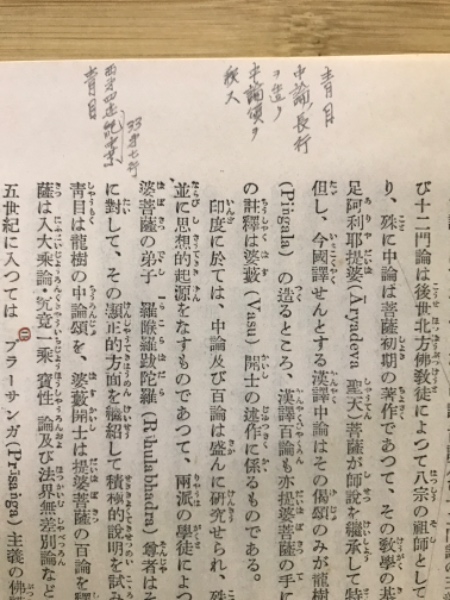 青目
中論ノ長行
ヲ造リ
中論頌ヲ
釈ス
青目
び十二門論は後世北方佛教徒によつて八宗の祖師として
り、殊に中論は菩薩初期の著作であつて、その教學の基
足阿利耶提婆(Āryadeva 聖天)菩薩が師說を繼承して特
但し、今國譯せんとする漢譯中論はその偈頌のみが龍樹
(Piṅgala) の造るところ、漢譯百論も亦提婆菩薩の手に
の註釋は婆藪(Vasu) 開士の述作に係るものである。
印度に於ては、中論及び百論は盛んに研究せられ、殊
並に思想的起源をなすものであつて、兩派の學徒によつ
婆菩薩の弟子 羅睺羅跋陀羅(Rāhulabhadra) 尊者はそ
に對して、その顯正的方面を繼紹して積極的說明を試み
靑目は龍樹の中論頌を、婆藪開士は提婆菩薩の百論を釋
薩は入大乘論、究竟一乘 寶性 論及び法界無差別論など
五世紀に入つては プラーサンガ(Prāsaṅga) 主義の佛